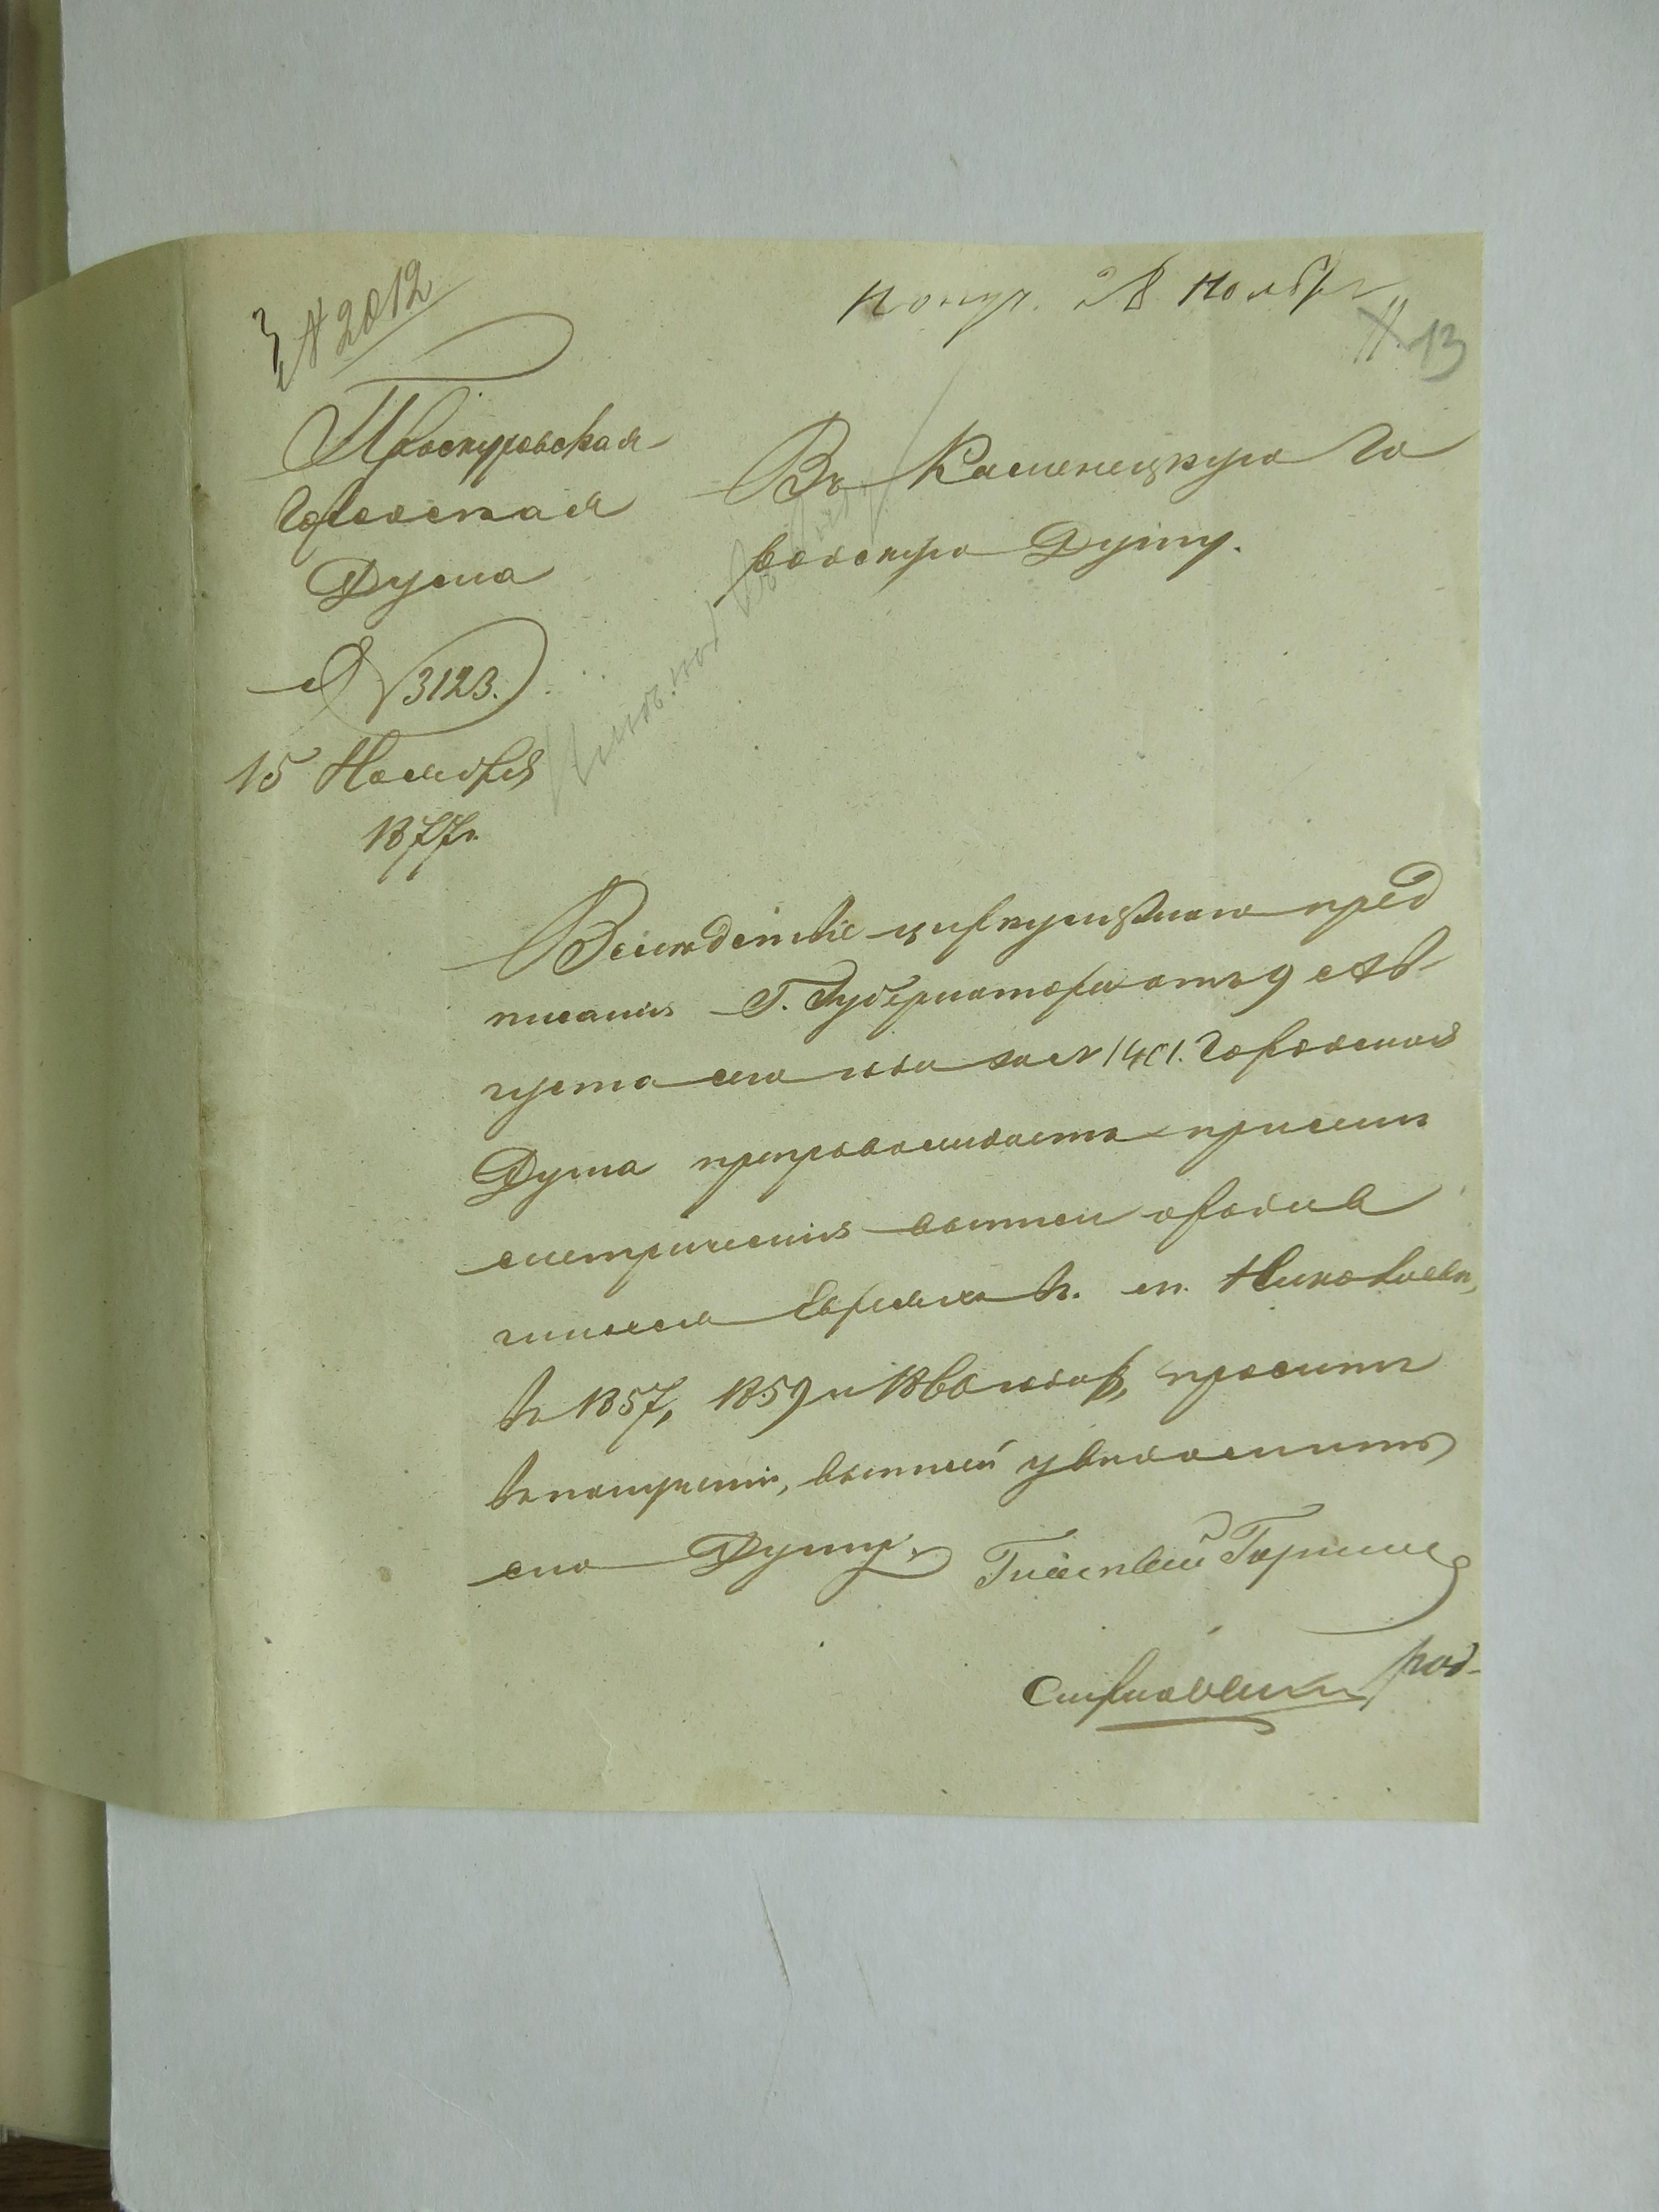 № 2012
Получ. 28 Ноября
13
Проскуровская
Городская
Дума
№ 3123.
15 Ноября
1877г.
Въ Каменецкую Го
родскую Думу.
Вслѣдствіе циркулярнаго пред
писанія Г. Губернатора отъ 9 Ав-
густа сего года за № 1401. Городская
Дума препровождаетъ при семъ
метрическія выписи о родив
шихся Евреяхъ въ м. Николаевѣ,
въ 1857, 1859 и 1860 годах, проситъ
въ полученіи, выписей увѣдомить
сію Думу.
Городской